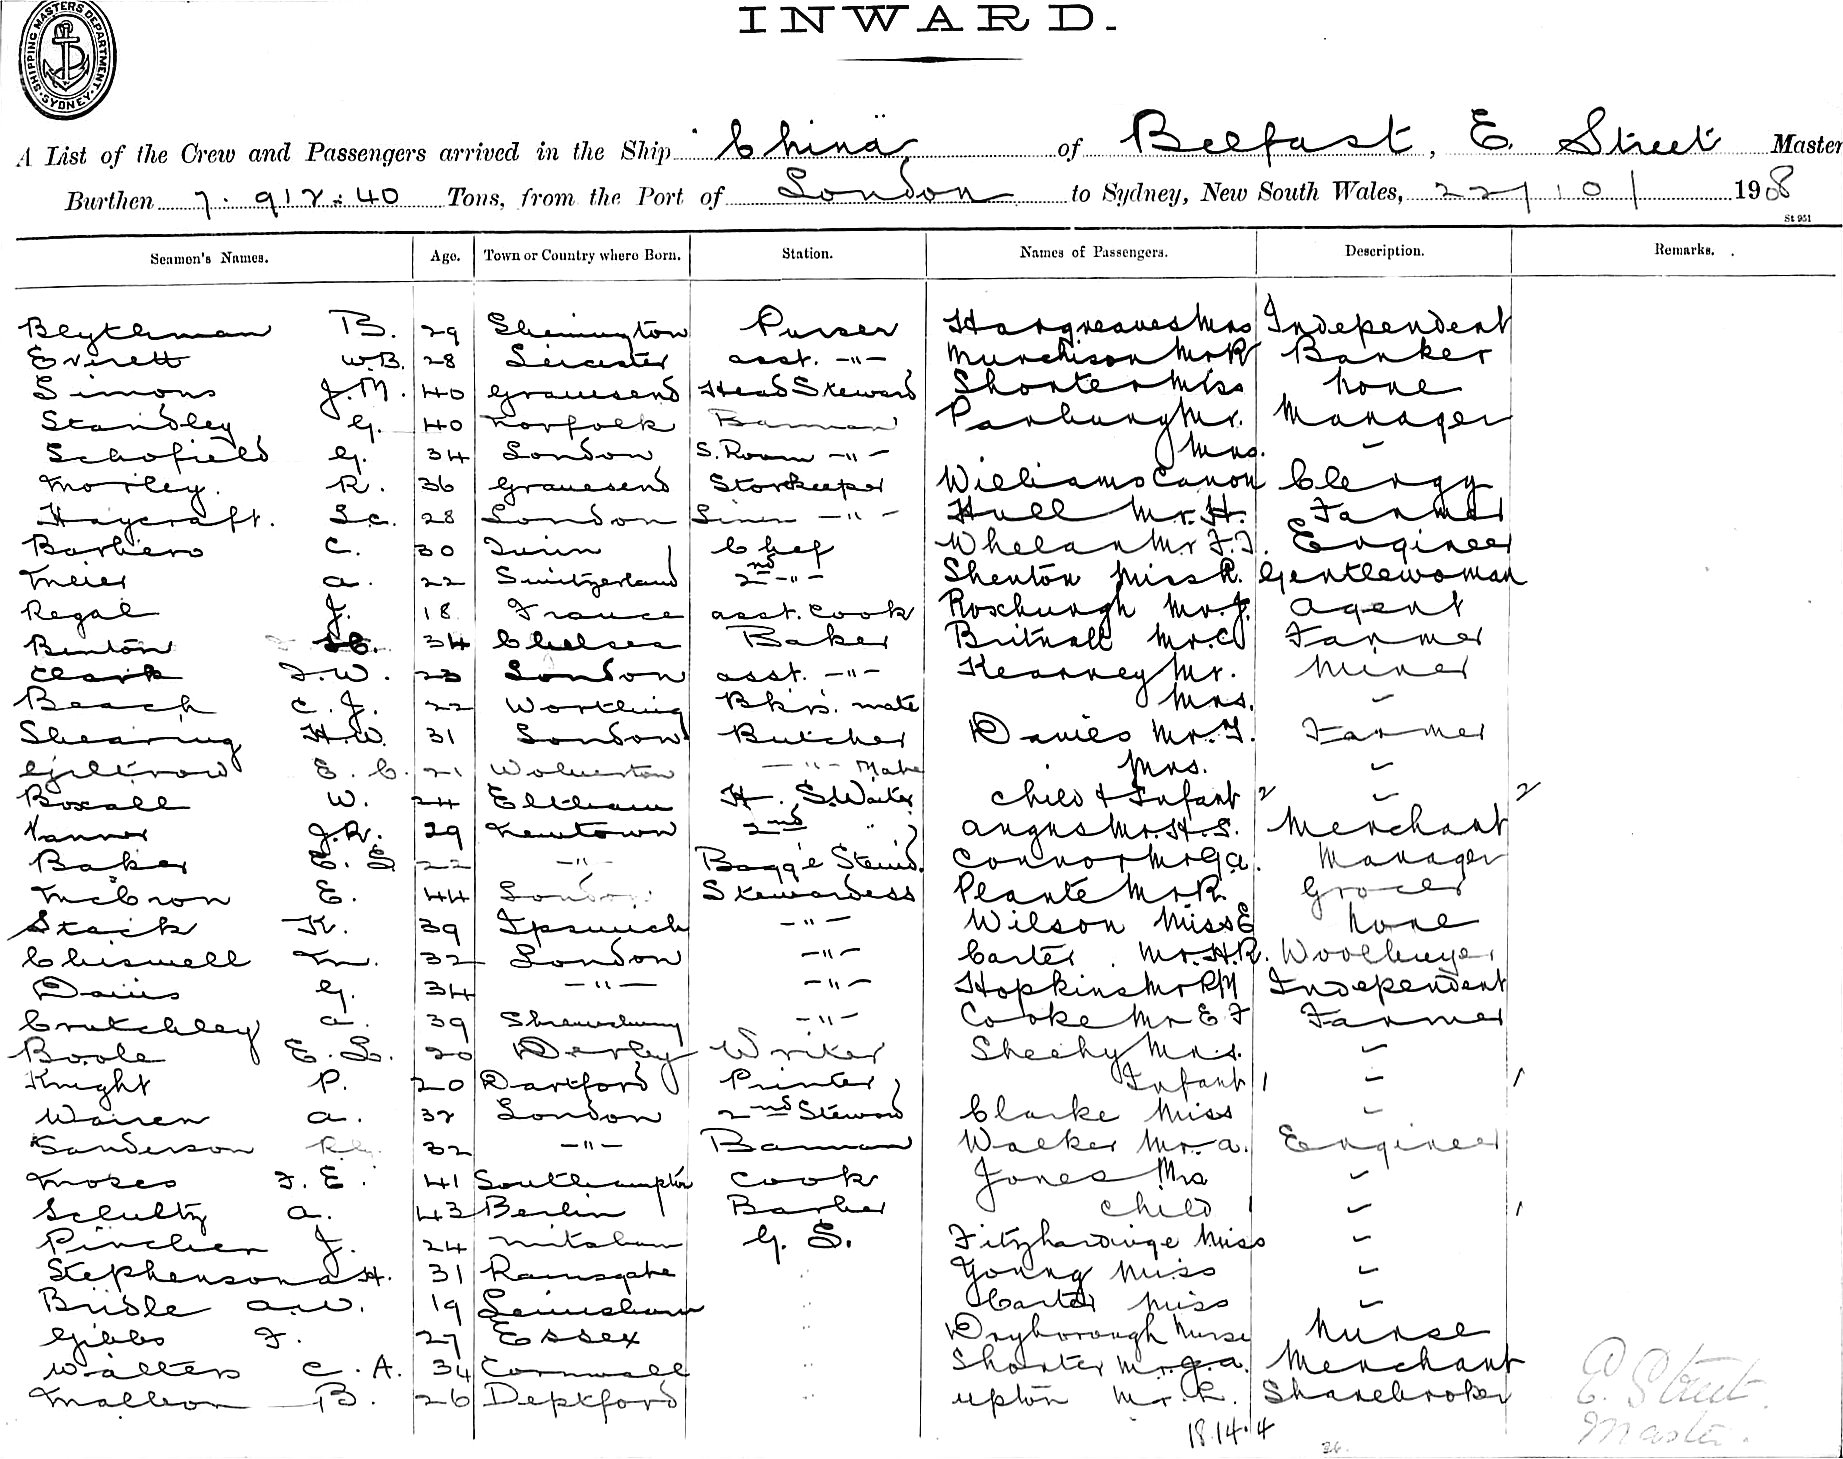 SHIPPING MASTERS DEPARTMENT. SYDNEY.
INWARD.
A List of the Crew and Passengers arrived in the Ship China of Belfast, E. Street Master
Burthen 7.912.40 Tons, from the Port of London to Sydney, New South Wales, 22/10/1908
St 951
Seamen's Names. Age. Town or Country where Born. Station. Names of Passengers. Description. Remarks.
Blythman B. 29 Purser Hargreaves Mrs Independent
Everett W.B. 28 Leicester asst. -"- Murchison Mr R Banker
Simons J.M. 40 Gravesend Head Steward Shorter Miss None
Standley G. 40 Norfolk Barman Parbury Mr. Manager
Schofield G. 34 London S. Room -"- Mrs. -
Morley. R. 36 Gravesend Storekeeper Williams Canon Clergy
Haycraft. 28 London Linen -"- Hull Mr. H. Farmer
Barbero C. 30 Turin Chef Whelan Mr J.J. Engineer
Meier a. 22 Switzerland 2nd -"- Shenton Miss R. Gentlewoman
Regal J. 18 France asst. Cook Roxburgh Mr. J. agent
Benton 34 Chelsea Baker Britnall Mr. C Farmer
Clark F.W. 23 London asst. -"- Kearney Mr. Miner
Beach C.J. 22 Worthing Bkrs. mate Mrs. -
Shearing H.W. 31 London Butcher Davies Mr. T. Farmer
Giltrow E.C. 21 Wolverton -"- Mate Mrs. -
Boxall W. 24 Eltham H. S. Waiter Child & Infant 2 - 2
Vanner J.R. 29 Newtown 2nd " angus Mr. H.S. Merchant
Baker E.S 22 -"- Bagg'e Stewd. Connor Mr G a. Manager
McCron E. 44 London Stewardess Plante Mr R. Grocer
Stack K. 39 Ipswich -"- Wilson Miss E None
Chiswell M. 32 London -"- Carter Mr. H.R. Woolbuyer
Davis G. 34 -"- -"- Hopkins Mr R M Independent
Crutchley a. 39 Shrewsbury -"- Cooke Mr E F Farmer
Boole E.L. 20 Derby Writer Sheehy Mrs. -
Knight P. 20 Dartford Printer Infant 1 - 1
Warren a. 32 London 2nd Steward Clarke Miss -
Sanderson 32 -"- Barman Walker Mr. a. Engineer
Moses F.E. 41 Southampton Cook Jones Mrs -
Schultz a. 43 Berlin Barber Child 1 - 1
Pincher J. 24 Mitcham G.S. Fitzhardinge Miss -
Stephenson a H. 31 Ramsgate " Young Miss -
Bridle a.w. 19 Lewisham " Carter Miss -
Gibbs F. 27 Essex " Dryborough Nurse Nurse
Walters C.A. 34 Cornwall " Shorter Mr. J.a. Merchant
Malleon B. 26 Deptford " upton Mr. R. Sharebroker
18.14.4
26.
E. Street
Master.